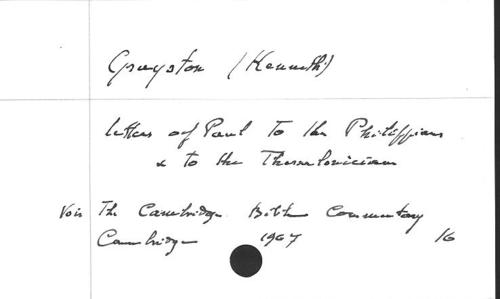 Grayston (Kenneth)
Letters of Paul To the Philippians
& to the Thessalonicians
Vois The Cambridge Bible Commentary
Cambridge 1967 16